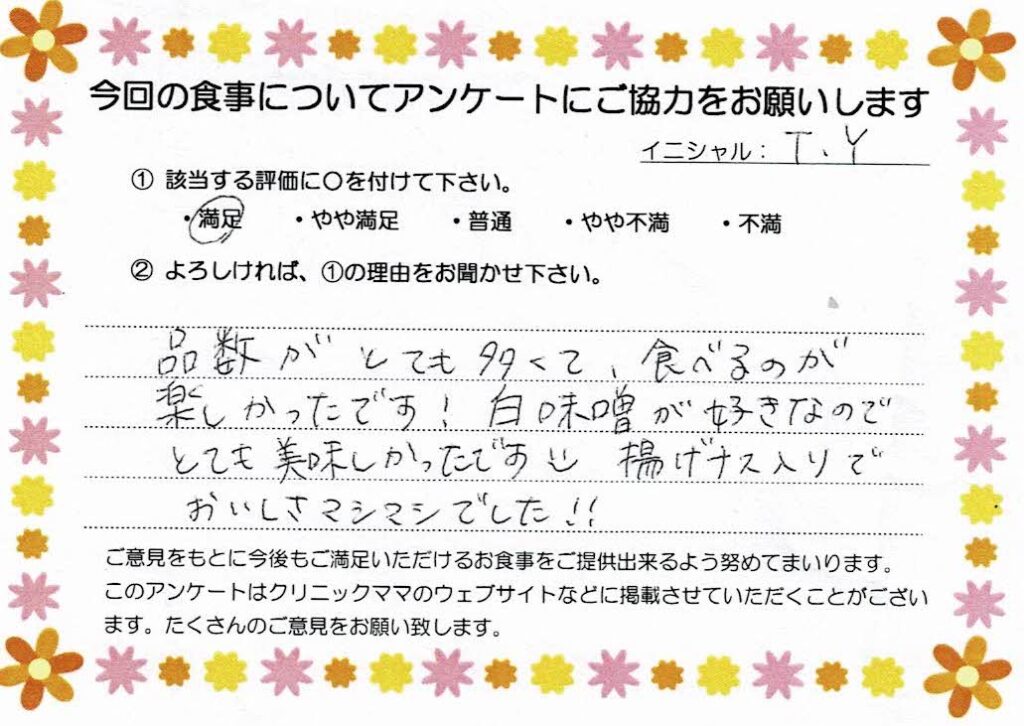 今回の食事についてアンケートにご協力をお願いします
イニシャル： T.Y
① 該当する評価に〇を付けて下さい。
・満足 ・やや満足 ・普通 ・やや不満 ・不満
② よろしければ、①の理由をお聞かせ下さい。
品数がとても多くて、食べるのが
楽しかったです！ 白味噌が好きなので
とても美味しかったです 揚げナス入りで
おいしさマシマシでした!!
ご意見をもとに今後もご満足いただけるお食事をご提供出来るよう努めてまいります。
このアンケートはクリニックママのウェブサイトなどに掲載させていただくことがござい
ます。たくさんのご意見をお願い致します。